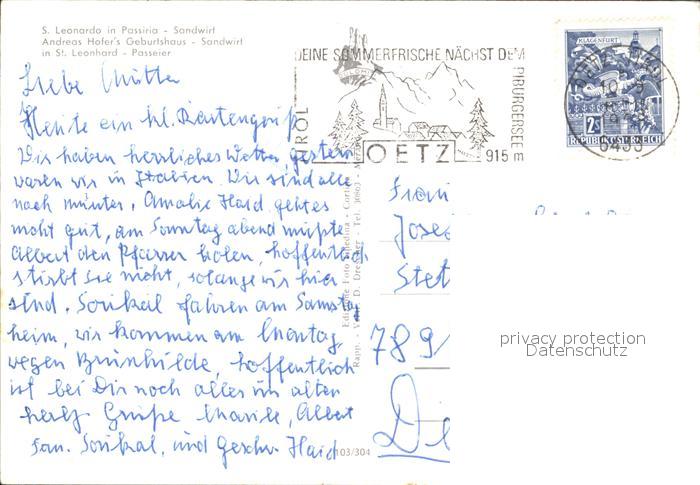 S. Leonardo in Passiria - Sandwirt
Andreas Hofer's Geburtshaus - Sandwirt
in St. Leonhard - Passeier
DEINE SOMMERFRISCHE NÄCHST DEM
PIBURGERSEE
TIROL
OETZ
915 m
KLAGENFURT
2 S
REPUBLIK ÖSTERREICH
6433
Liebe Mutter
Heute ein kl. Kartengruß
Wir haben herrliches Wetter, gestern
waren wir in Italien. Wir sind alle
noch munter, Amalie Haid geht es
nicht gut, am Sonntag abend mußte
Albert den Pfarrer holen, hoffentlich
stirbt sie nicht, solange wir hier
sind. Sonkal fahren am Samstag
heim, wir kommen am Montag
wegen Brunhilde, hoffentlich
ist bei Dir noch alles im alten
herzl Grüße Albert
Fam. Sonkal, und Geschw. Haid
Frau
Jose
Stet
789
103/304
privacy protection
Datenschutz